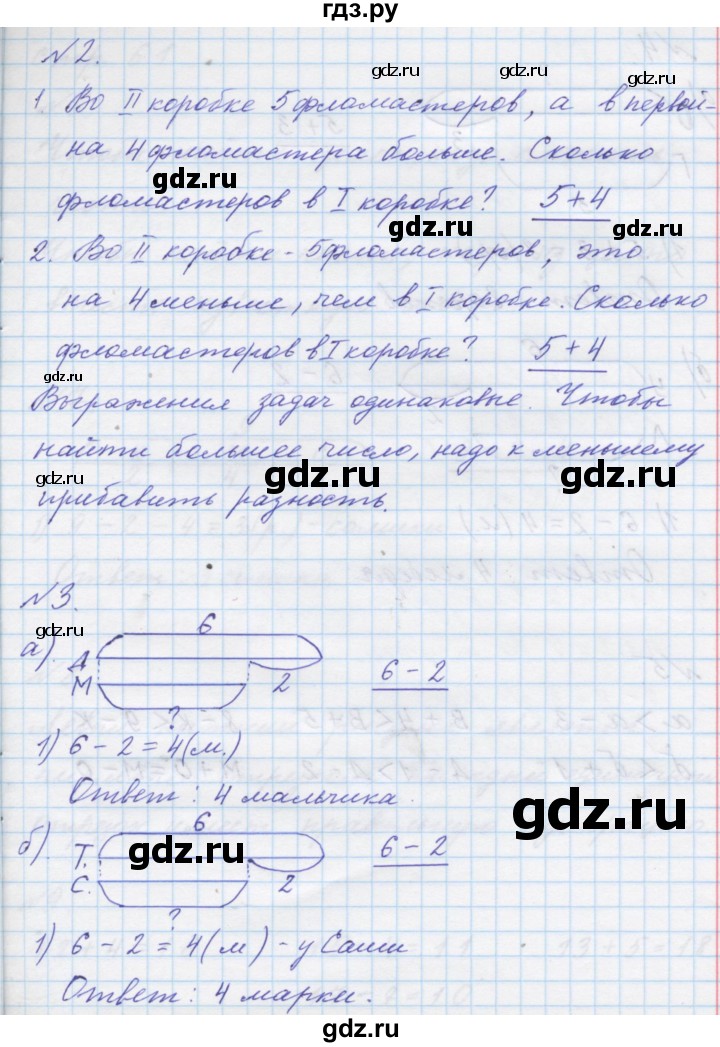 гдз.ру
N2.
gdz.ru gdz.ru
1 Во II коробке 5 фломастеров, а в первой-
на 4 фломастера больше. Сколько
gdz.ru
фломастеров в I коробке? 5+4
gdz.ru
2. Во II коробке - 5 фломастеров, это
на 4 меньше, чем в I коробке. Сколько
фломастеров в I коробке? 5+4
gdz.ru
Выражения задач одинаковые. Чтобы
найти большее число, надо к меньшему
gdz.ru gdz.ru gdz.ru
прибавить разность.
N3.
gdz.ru
а) 6
Д
М 2 6-2
gdz.ru
?
1) 6-2=4(м.)
Ответ: 4 мальчика.
gdz.ru gdz.ru
б) 6
Т. 6-2
gdz.ru gdz.ru
С. 2
?
1) 6-2=4(м) - у Саши
gdz.ru gdz.ru
Ответ: 4 марки.
gdz.ru